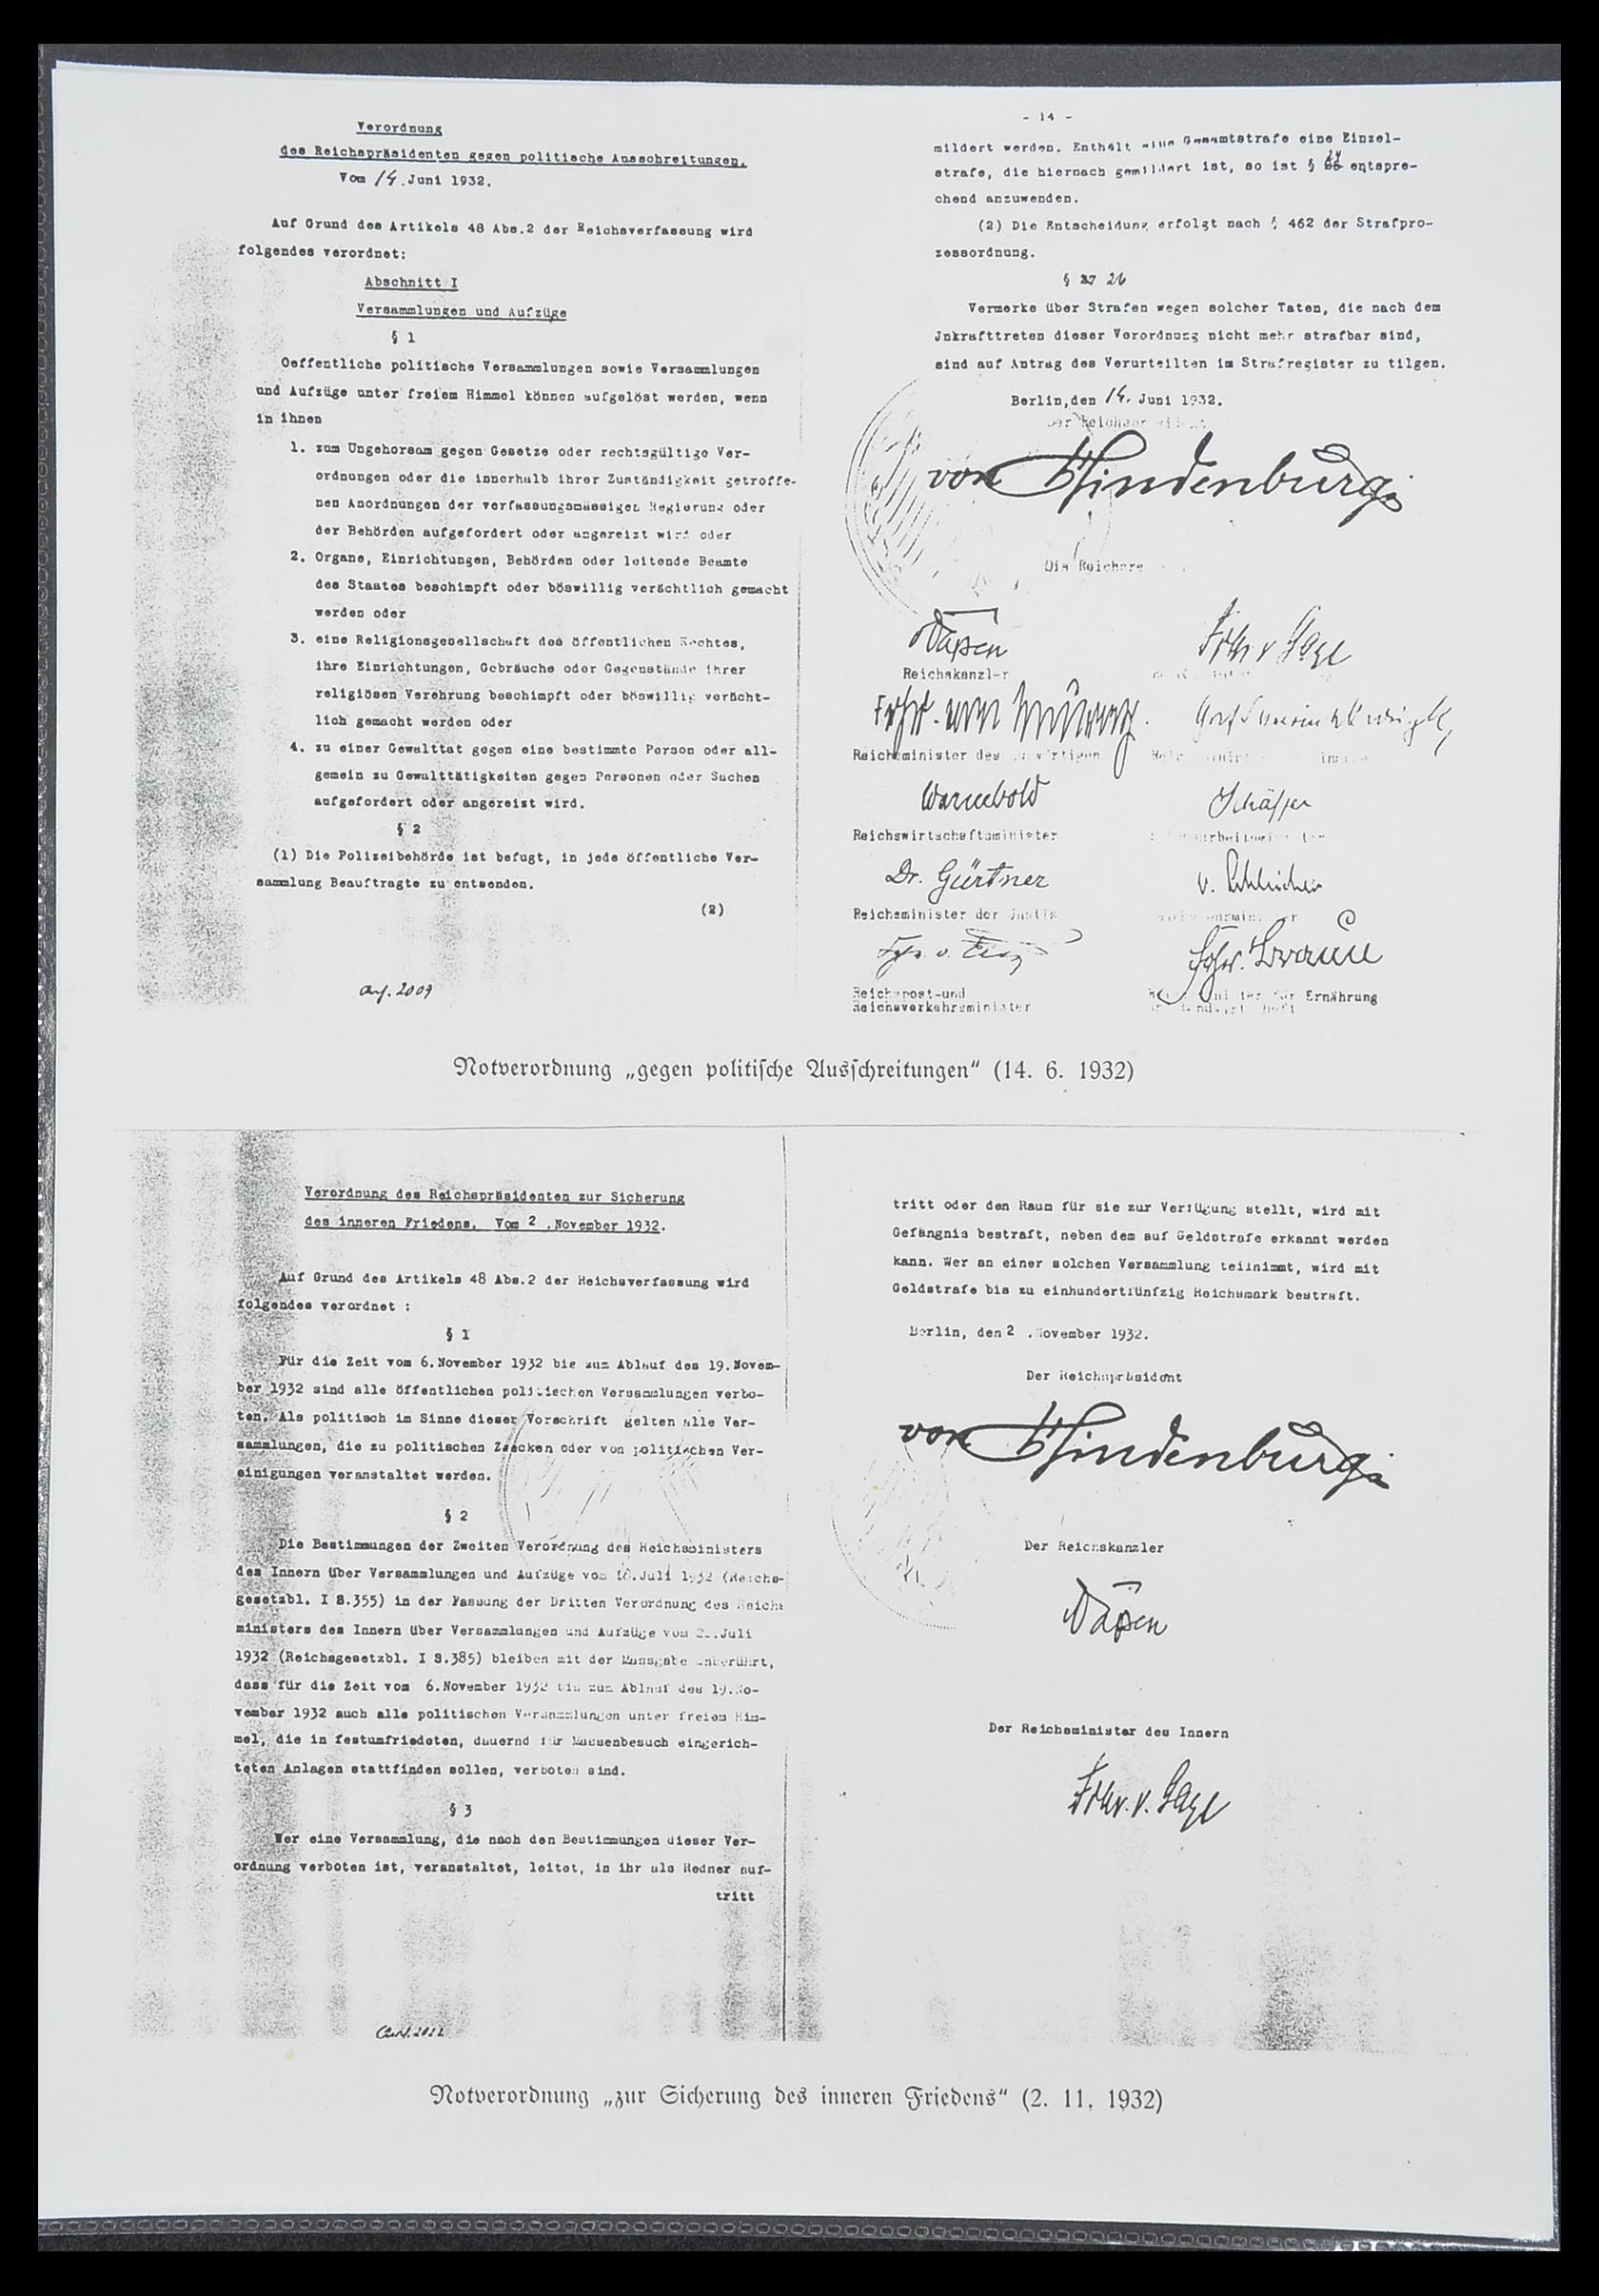 Verordnung
des Reichspräsidenten gegen politische Ausschreitungen.
Vom 14. Juni 1932.
Auf Grund des Artikels 48 Abs.2 der Reichsverfassung wird
folgendes verordnet:
Abschnitt I
Versammlungen und Aufzüge
§ 1
Oeffentliche politische Versammlungen sowie Versammlungen
und Aufzüge unter freiem Himmel können aufgelöst werden, wenn
in ihnen
1. zum Ungehorsam gegen Gesetze oder rechtsgültige Ver-
ordnungen oder die innerhalb ihrer Zuständigkeit getroffe-
nen Anordnungen der verfassungsmässigen Regierung oder
der Behörden aufgefordert oder angereizt wird oder
2. Organe, Einrichtungen, Behörden oder leitende Beamte
des Staates beschimpft oder böswillig verächtlich gemacht
werden oder
3. eine Religionsgesellschaft des öffentlichen Rechtes,
ihre Einrichtungen, Gebräuche oder Gegenstände ihrer
religiösen Verehrung beschimpft oder böswillig verächt-
lich gemacht werden oder
4. zu einer Gewalttat gegen eine bestimmte Person oder all-
gemein zu Gewalttätigkeiten gegen Personen oder Sachen
aufgefordert oder angereizt wird.
§ 2
(1) Die Polizeibehörde ist befugt, in jede öffentliche Ver-
sammlung Beauftragte zu entsenden.
(2)
2009
- 14 -
mildert werden. Enthält eine Gesamtstrafe eine Einzel-
strafe, die hiernach gemildert ist, so ist § entspre-
chend anzuwenden.
(2) Die Entscheidung erfolgt nach § 462 der Strafpro-
zessordnung.
§ 27 26
Vermerke über Strafen wegen solcher Taten, die nach dem
Jnkrafttreten dieser Verordnung nicht mehr strafbar sind,
sind auf Antrag des Verurteilten im Strafregister zu tilgen.
Berlin,den 14. Juni 1932.
Der
von Hindenburg
Die
Papen
Frhr v Gayl
Reichskanzler
Frhr. von Neurath.
Reichsminister des Auswärtigen
Warmbold
Schäffer
Reichswirtschaftsminister
Dr. Gürtner
v. Schleicher
Reichsminister der Justiz
Frhr. v.
Frhr. Braun
Reichspost-und
Reichsverkehrsminister
für Ernährung
Notverordnung „gegen politische Ausschreitungen“ (14. 6. 1932)
Verordnung des Reichspräsidenten zur Sicherung
des inneren Friedens. Vom 2 .November 1932.
Auf Grund des Artikels 48 Abs.2 der Reichsverfassung wird
folgendes verordnet :
§ 1
Für die Zeit vom 6.November 1932 bis zum Ablauf des 19.Novem-
ber 1932 sind alle öffentlichen politischen Versammlungen verbo-
ten. Als politisch im Sinne dieser Vorschrift gelten alle Ver-
sammlungen, die zu politischen Zwecken oder von politischen Ver-
einigungen veranstaltet werden.
§ 2
Die Bestimmungen der Zweiten Verordnung des Reichsministers
des Innern über Versammlungen und Aufzüge vom 18.Juli 1932 (Reichs-
gesetzbl. I S.355) in der Fassung der Dritten Verordnung des Reichs
ministers des Innern über Versammlungen und Aufzüge vom Juli
1932 (Reichsgesetzbl. I S.385) bleiben mit der Massgabe unberührt,
dass für die Zeit vom 6.November 1932 bis zum Ablauf des 19.No-
vember 1932 auch alle politischen Versammlungen unter freiem Him-
mel, die in festumfriedeten, dauernd für Massenbesuch eingerich-
teten Anlagen stattfinden sollen, verboten sind.
§ 3
Wer eine Versammlung, die nach den Bestimmungen dieser Ver-
ordnung verboten ist, veranstaltet, leitet, in ihr als Redner auf-
tritt
tritt oder den Raum für sie zur Verfügung stellt, wird mit
Gefängnis bestraft, neben dem auf Geldstrafe erkannt werden
kann. Wer an einer solchen Versammlung teilnimmt, wird mit
Geldstrafe bis zu einhundertfünfzig Reichsmark bestraft.
Berlin, den 2 .November 1932.
Der Reichspräsident
von Hindenburg
Der Reichskanzler
Papen
Der Reichsminister des Innern
Frhr. v. Gayl
Notverordnung „zur Sicherung des inneren Friedens“ (2. 11. 1932)